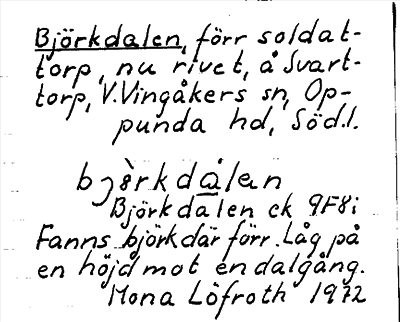 Björkdalen, förr soldat-
torp, nu rivet, å Svart-
torp, V. Vingåkers sn, Op-
punda hd, Södl.
bjö̀rkdalen
Björkdalen ek 9F8i
Fanns björk där förr. Låg på
en höjd mot en dalgång.
Mona Löfroth 1972